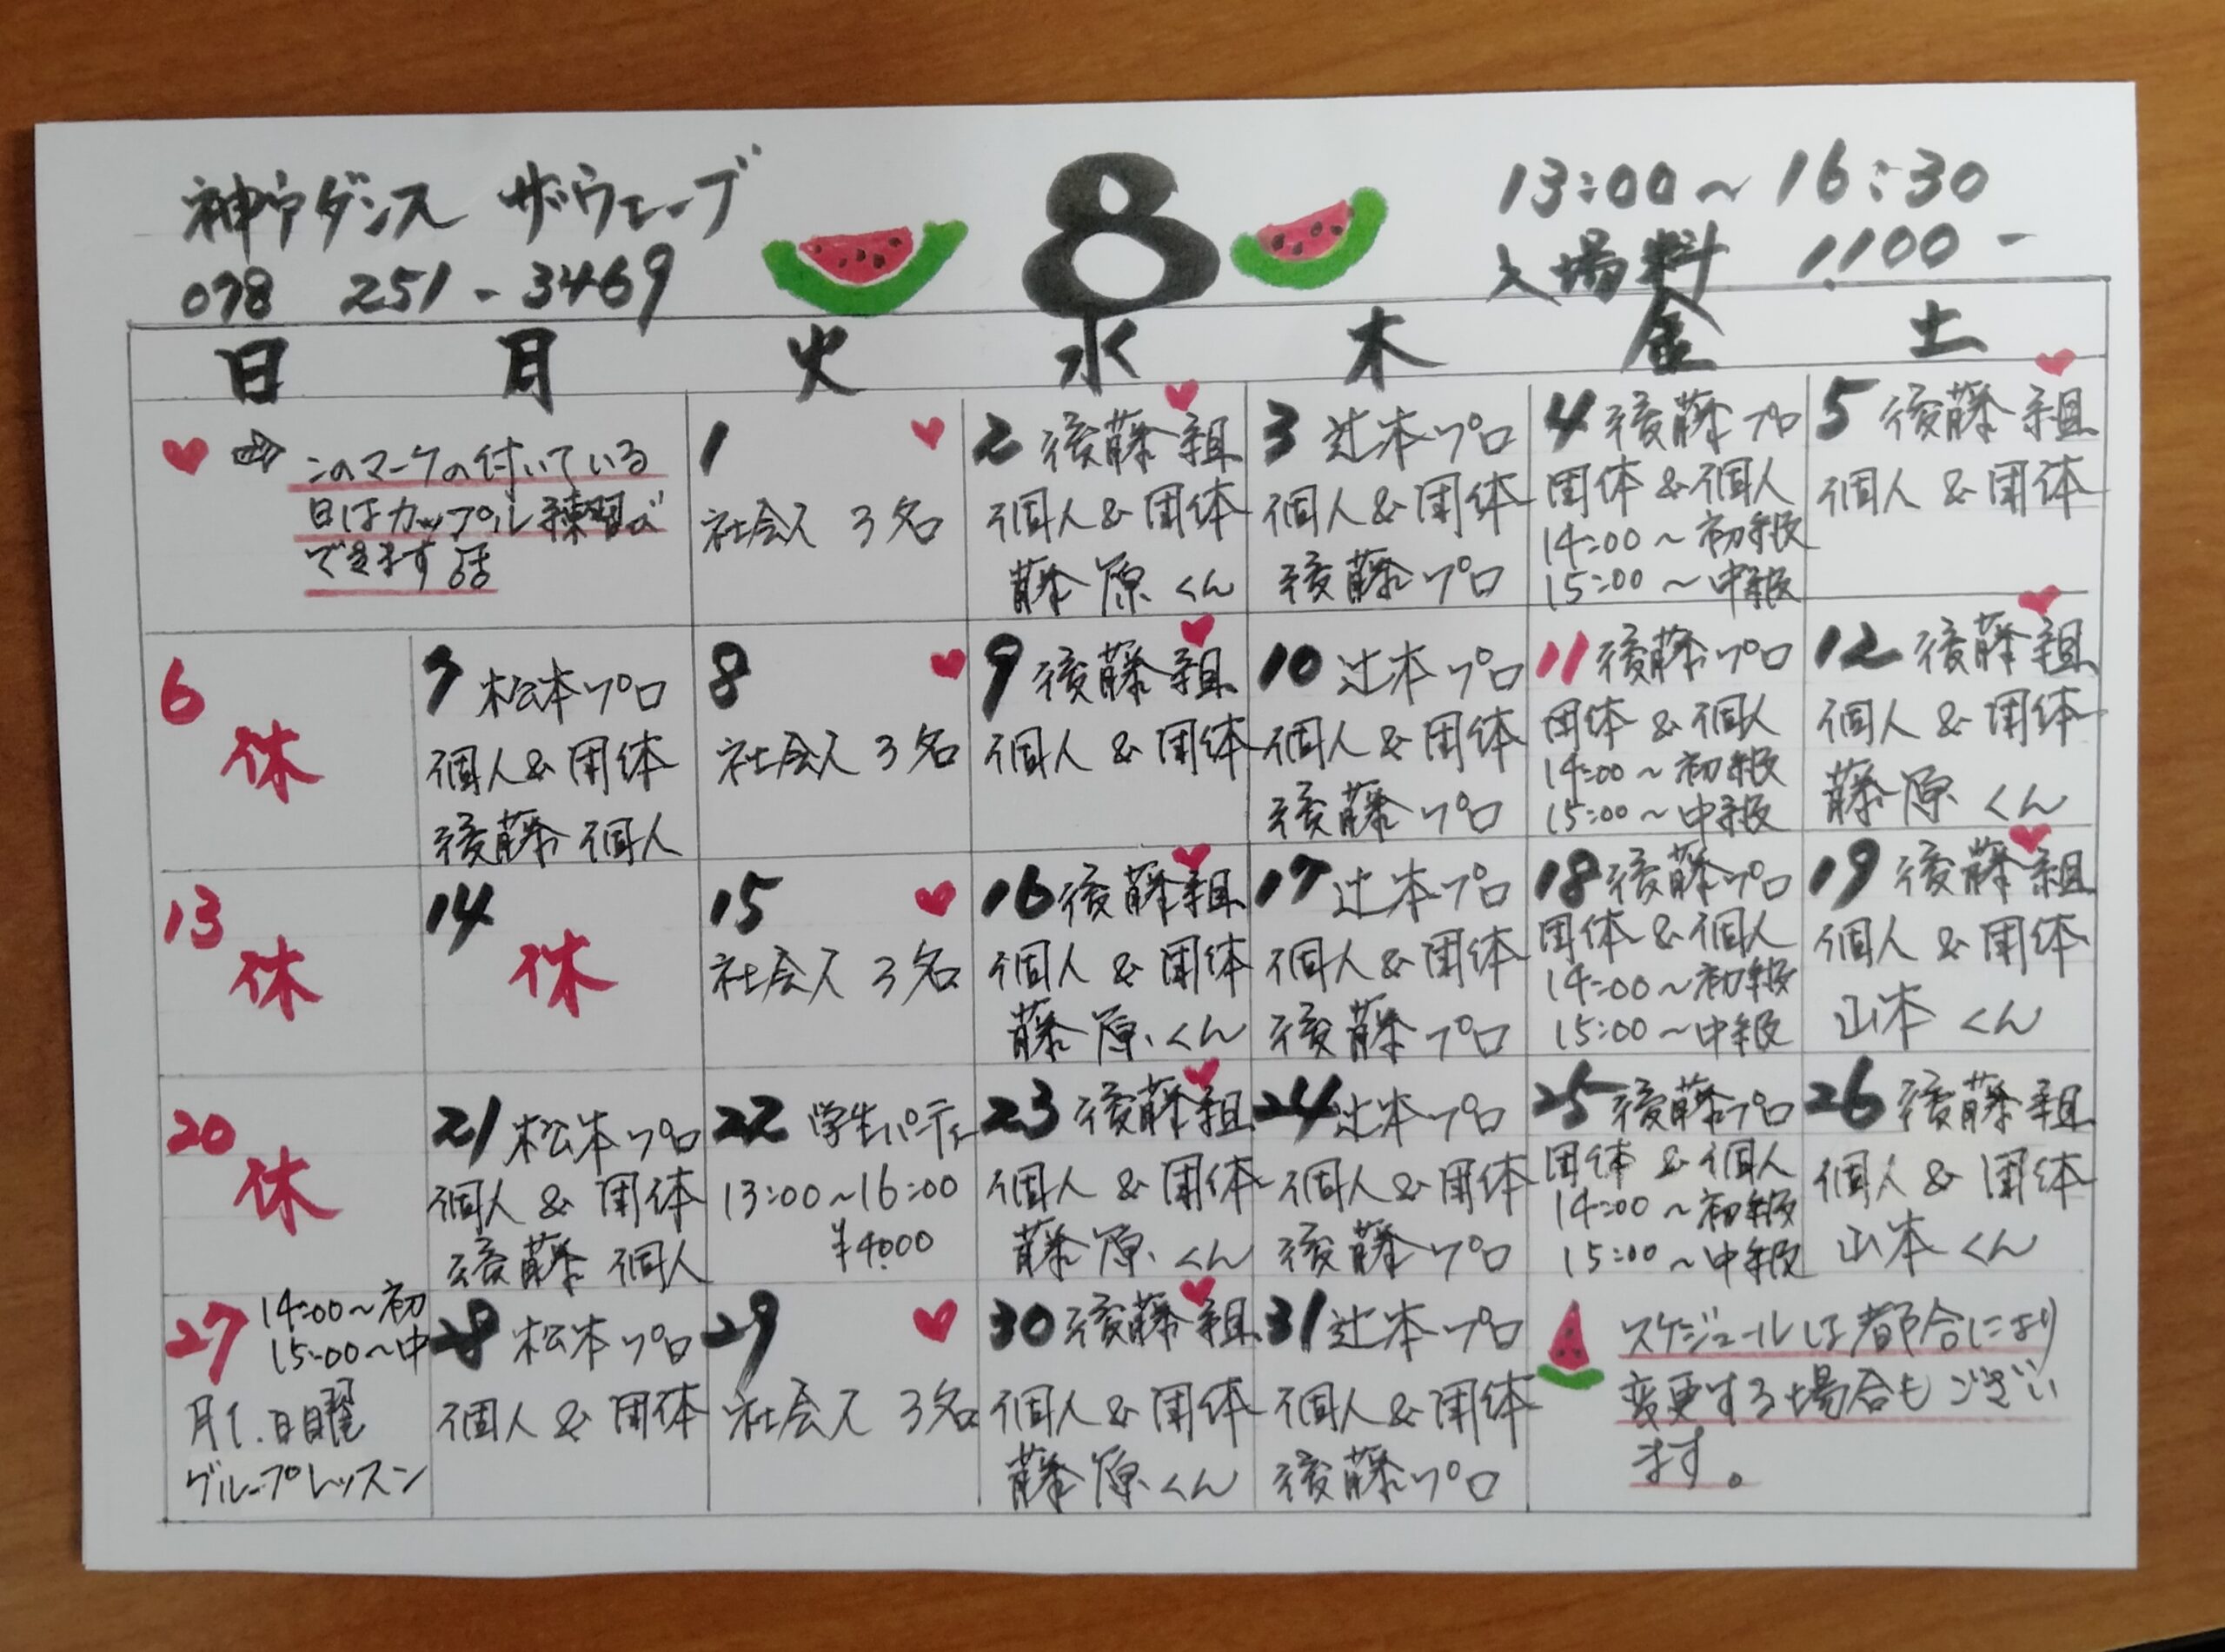 神戸ダンス ザウェーブ
078 251-3469
8
13:00~16:30
入場料 1,100-
日 月 火 水 木 金 土
このマークの付いている
日はカップル練習が
できます
1
社会人 3名
2 後藤組
個人&団体
藤原くん
3 辻本プロ
個人&団体
後藤プロ
4 後藤プロ
団体&個人
14:00~初級
15:00~中級
5 後藤組
個人&団体
6
休
7 松本プロ
個人&団体
後藤個人
8
社会人 3名
9 後藤組
個人&団体
10 辻本プロ
個人&団体
後藤プロ
11 後藤プロ
団体&個人
14:00~初級
15:00~中級
12 後藤組
個人&団体
藤原くん
13
休
14
休
15
社会人 3名
16 後藤組
個人&団体
藤原くん
17 辻本プロ
個人&団体
後藤プロ
18 後藤プロ
団体&個人
14:00~初級
15:00~中級
19 後藤組
個人&団体
山本くん
20
休
21 松本プロ
個人&団体
後藤個人
22 学生パーティ
13:00~16:00
¥4000
23 後藤組
個人&団体
藤原くん
24 辻本プロ
個人&団体
後藤プロ
25 後藤プロ
団体&個人
14:00~初級
15:00~中級
26 後藤組
個人&団体
山本くん
27 14:00~初
15:00~中
月1.日曜
グループレッスン
28 松本プロ
個人&団体
29
社会人 3名
30 後藤組
個人&団体
藤原くん
31 辻本プロ
個人&団体
後藤プロ
スケジュールは都合により
変更する場合もござい
ます。